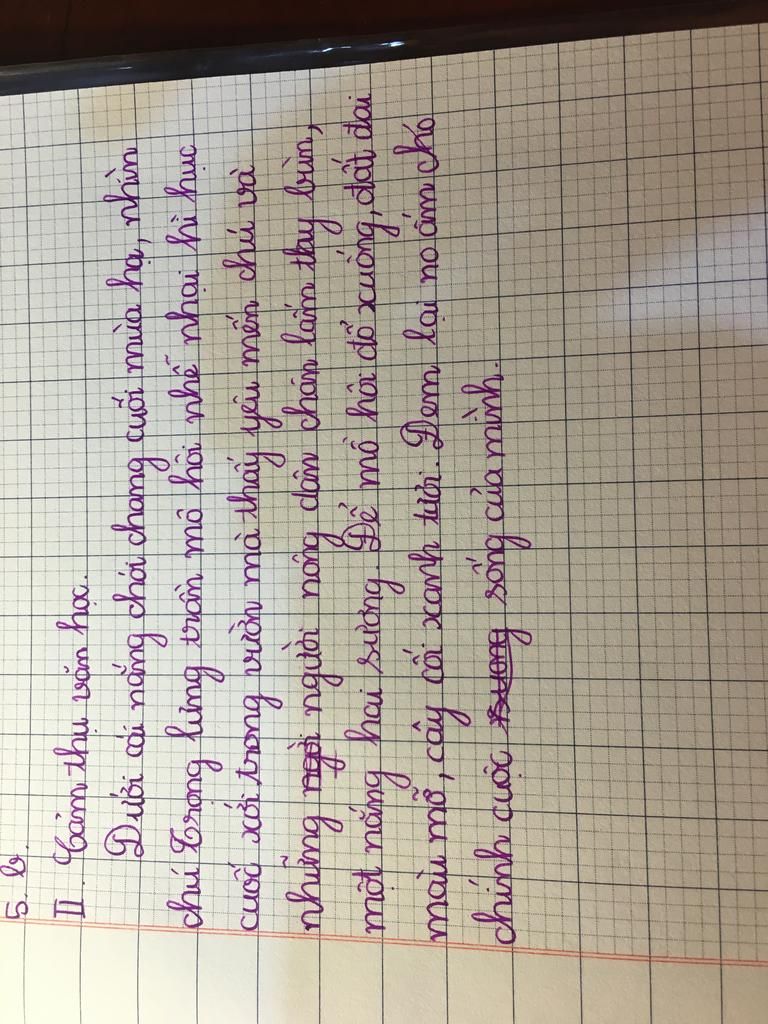 5. b.
II. Cảm thụ văn học.
Dưới cái nắng chói chang cuối mùa hạ, nhìn
chú Trọng lưng trần mồ hôi nhễ nhại hì hục
cuốc xới trong vườn mà thấy yêu mến chú và
những người nông dân chân lấm tay bùn,
một nắng hai sương. Để mồ hôi đổ xuống, đất đai
màu mỡ, cây cối xanh tươi. Đem lại no ấm cho
chính cuộc sống của mình.